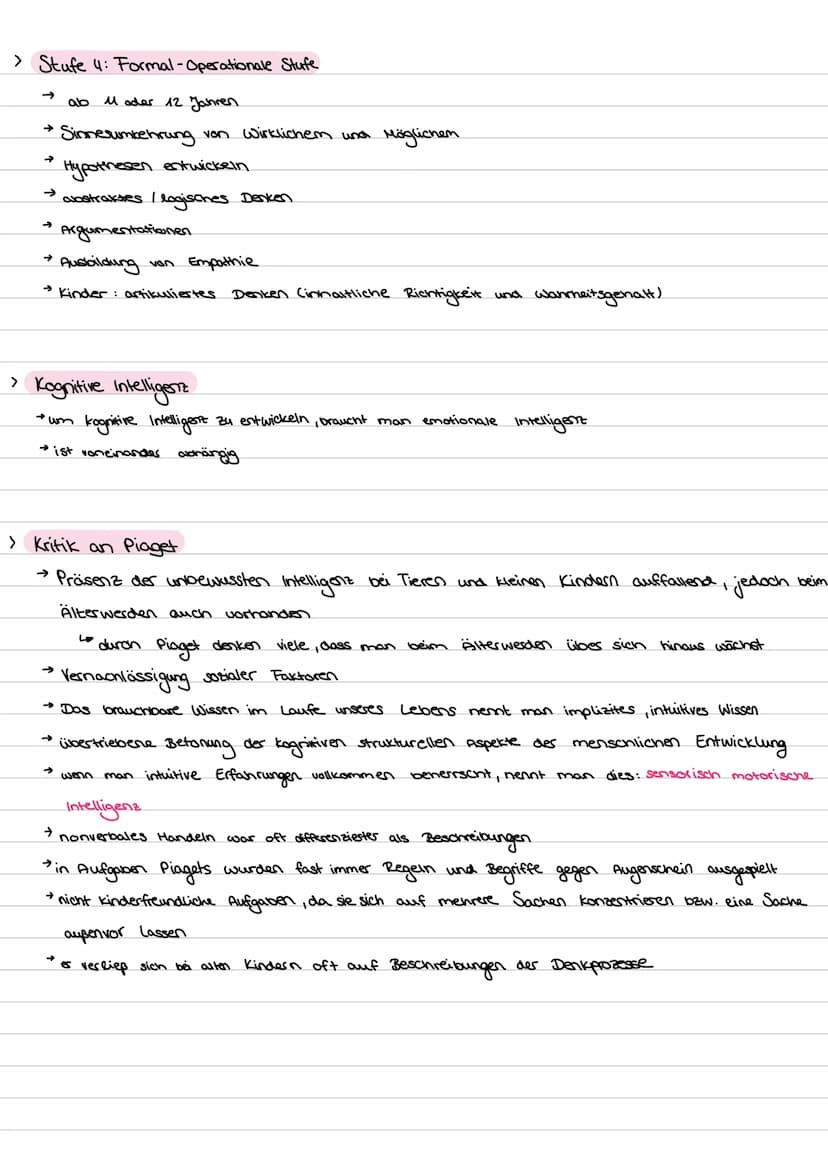 > Stufe 4: Formal-Operationale Stufe
→ ab 11 oder 12 Jahren
→ Sinnesumkehrung von Wirklichem und Möglichem
→ Hypothesen entwickeln
→ abstraktes / logisches Denken
→ Argumentationen
→ Ausbildung von Empathie
→ Kinder: artikuliertes Denken (inhaltliche Richtigkeit und Wahrheitsgehalt)
> Kognitive Intelligenz
→ um kognitive Intelligenz zu entwickeln, braucht man emotionale Intelligenz
→ ist voneinander abhängig
> Kritik an Piaget
→ Präsenz der unbewussten Intelligenz bei Tieren und kleinen Kindern auffallend, jedoch beim
Älterwerden auch vorhanden
↳ durch Piaget denken viele, dass man beim Älterwerden über sich hinaus wächst
→ Vernachlässigung sozialer Faktoren
→ Das brauchbare Wissen im Laufe unseres Lebens nennt man implizites, intuitives Wissen
→ übertriebene Betonung der kognitiven strukturellen Aspekte der menschlichen Entwicklung
→ wenn man intuitive Erfahrungen vollkommen beherrscht, nennt man dies: sensorisch motorische
Intelligenz
→ nonverbales Handeln war oft differenzierter als Beschreibungen
→ in Aufgaben Piagets wurden fast immer Regeln und Begriffe gegen Augenschein ausgespielt
→ nicht kinderfreundliche Aufgaben, da sie sich auf mehrere Sachen konzentrieren bzw. eine Sache
außenvor lassen
→ er verließ sich bei alten Kindern oft auf Beschreibungen der Denkprozesse